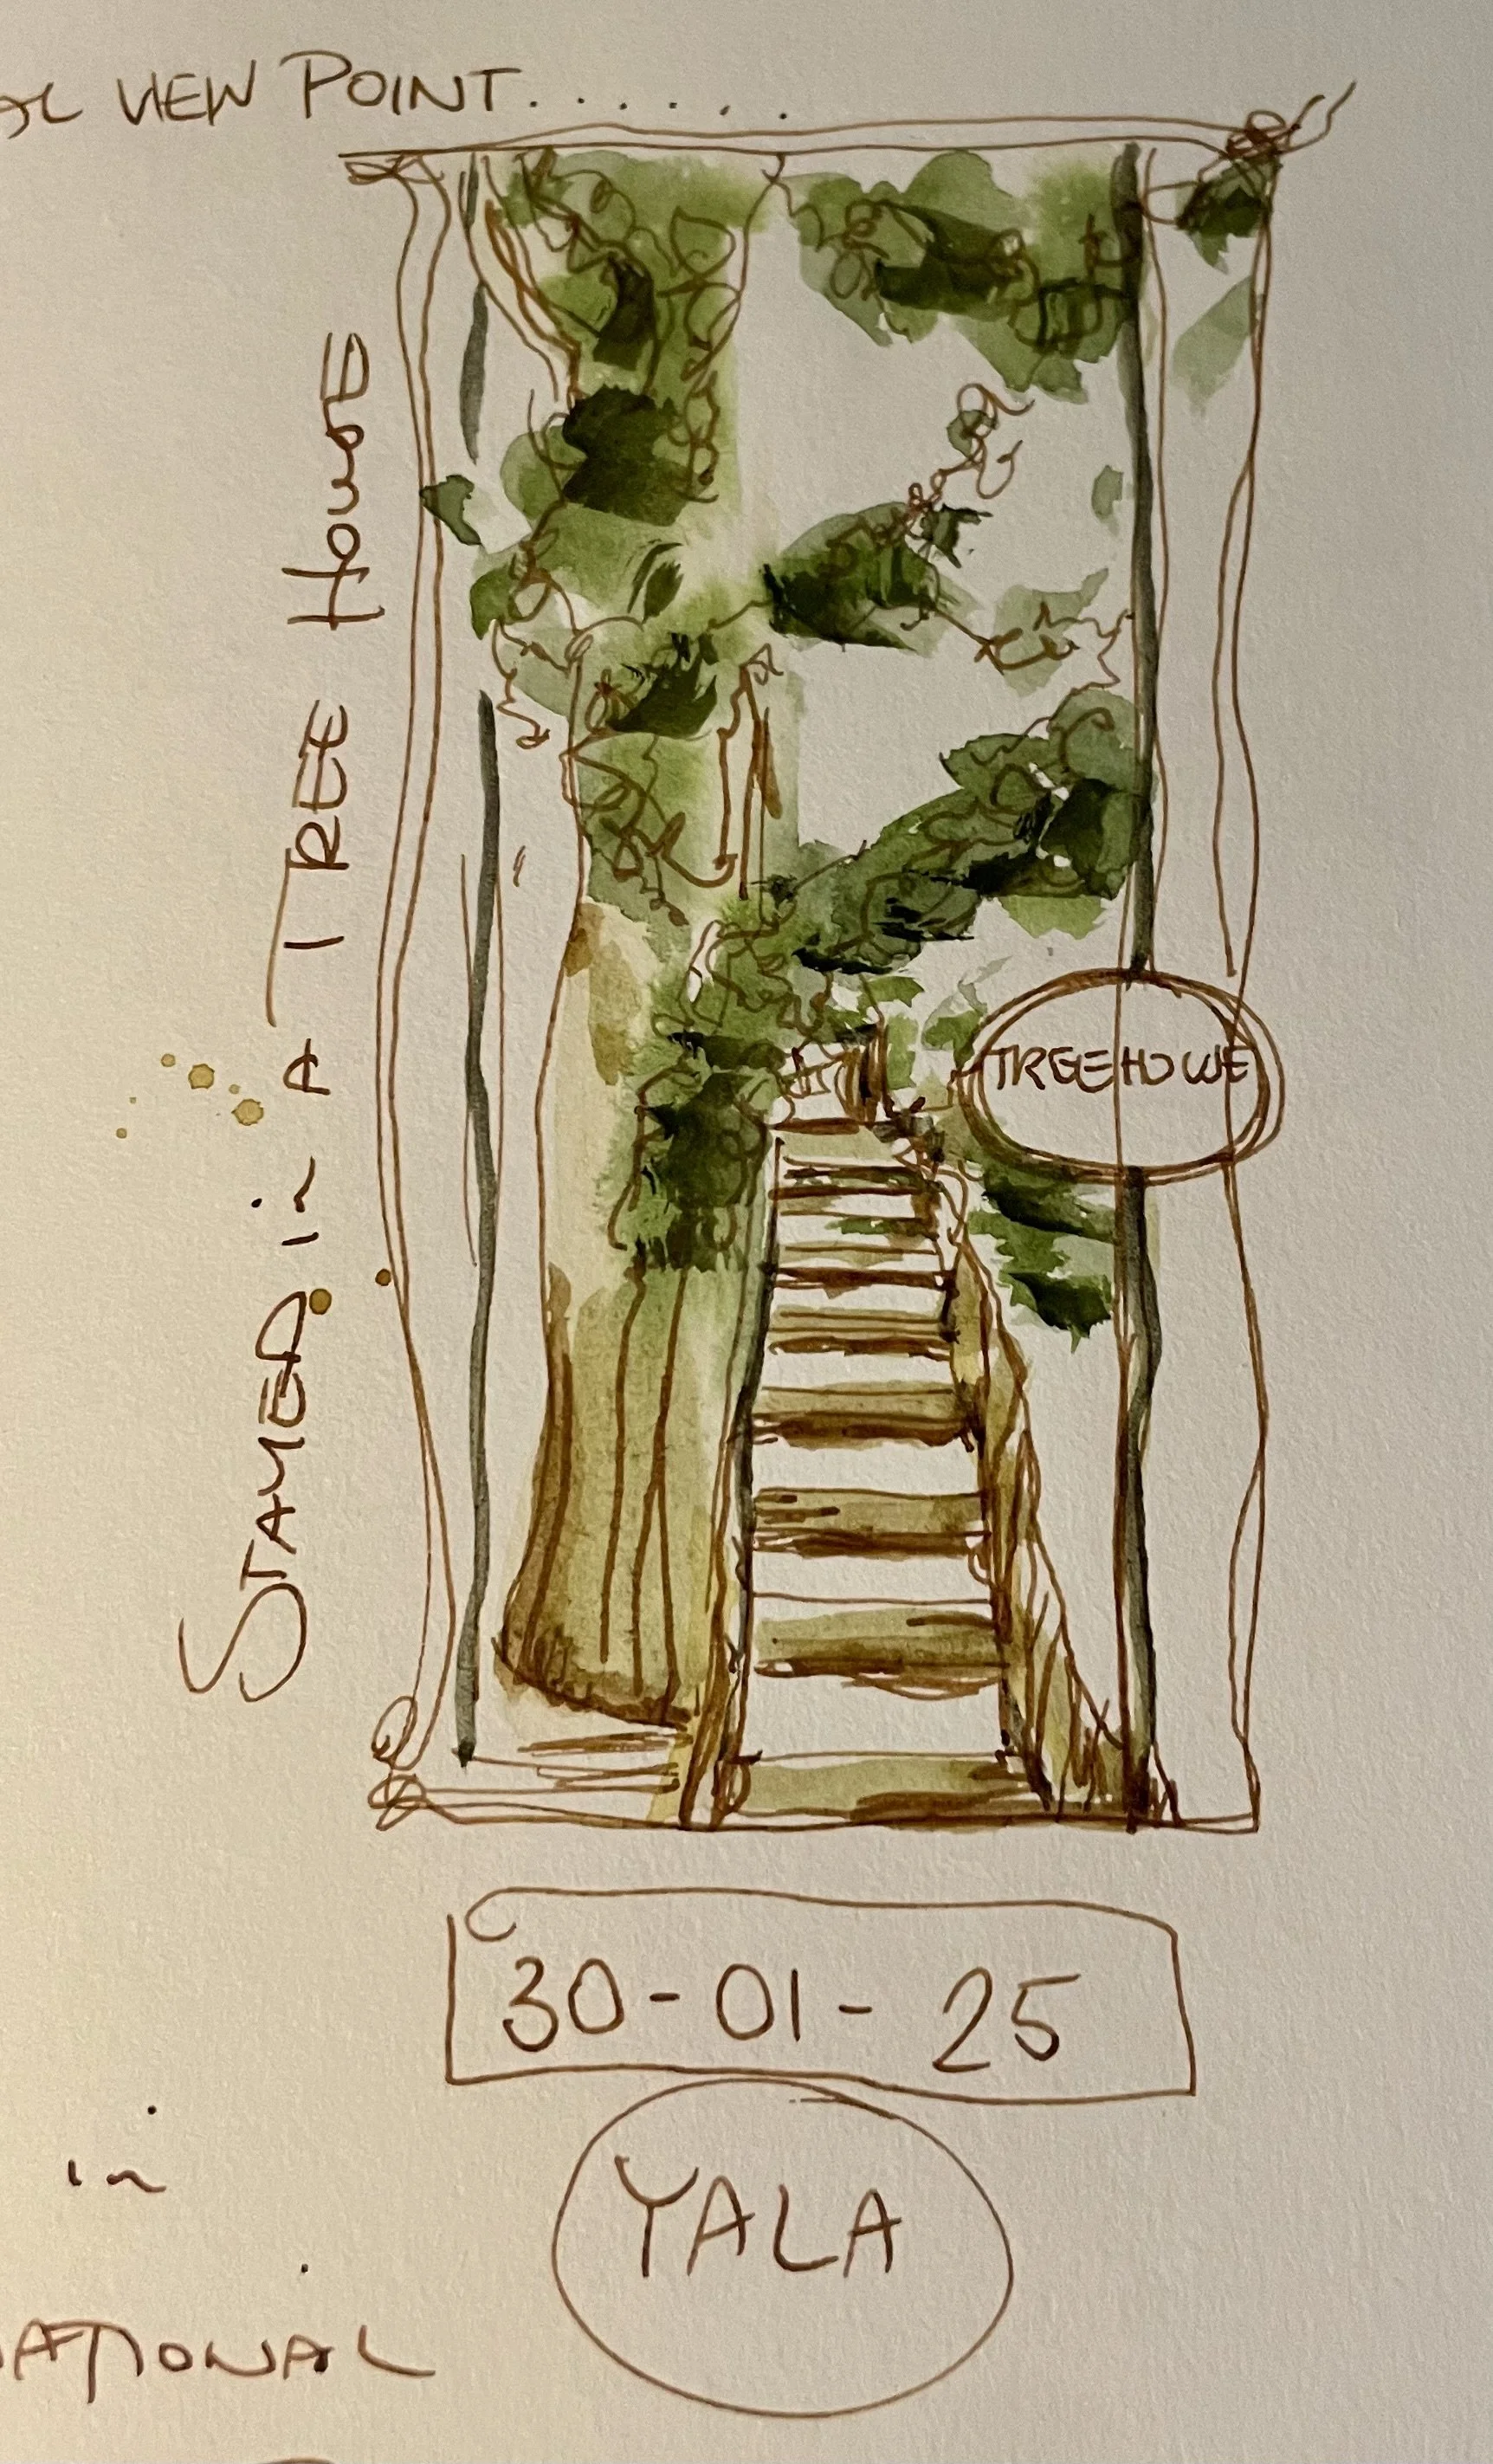 VIEW POINT.......
STAYED in A TREE HOUSE
TREE HOUSE
30-01-25
YALA
in
NATIONAL